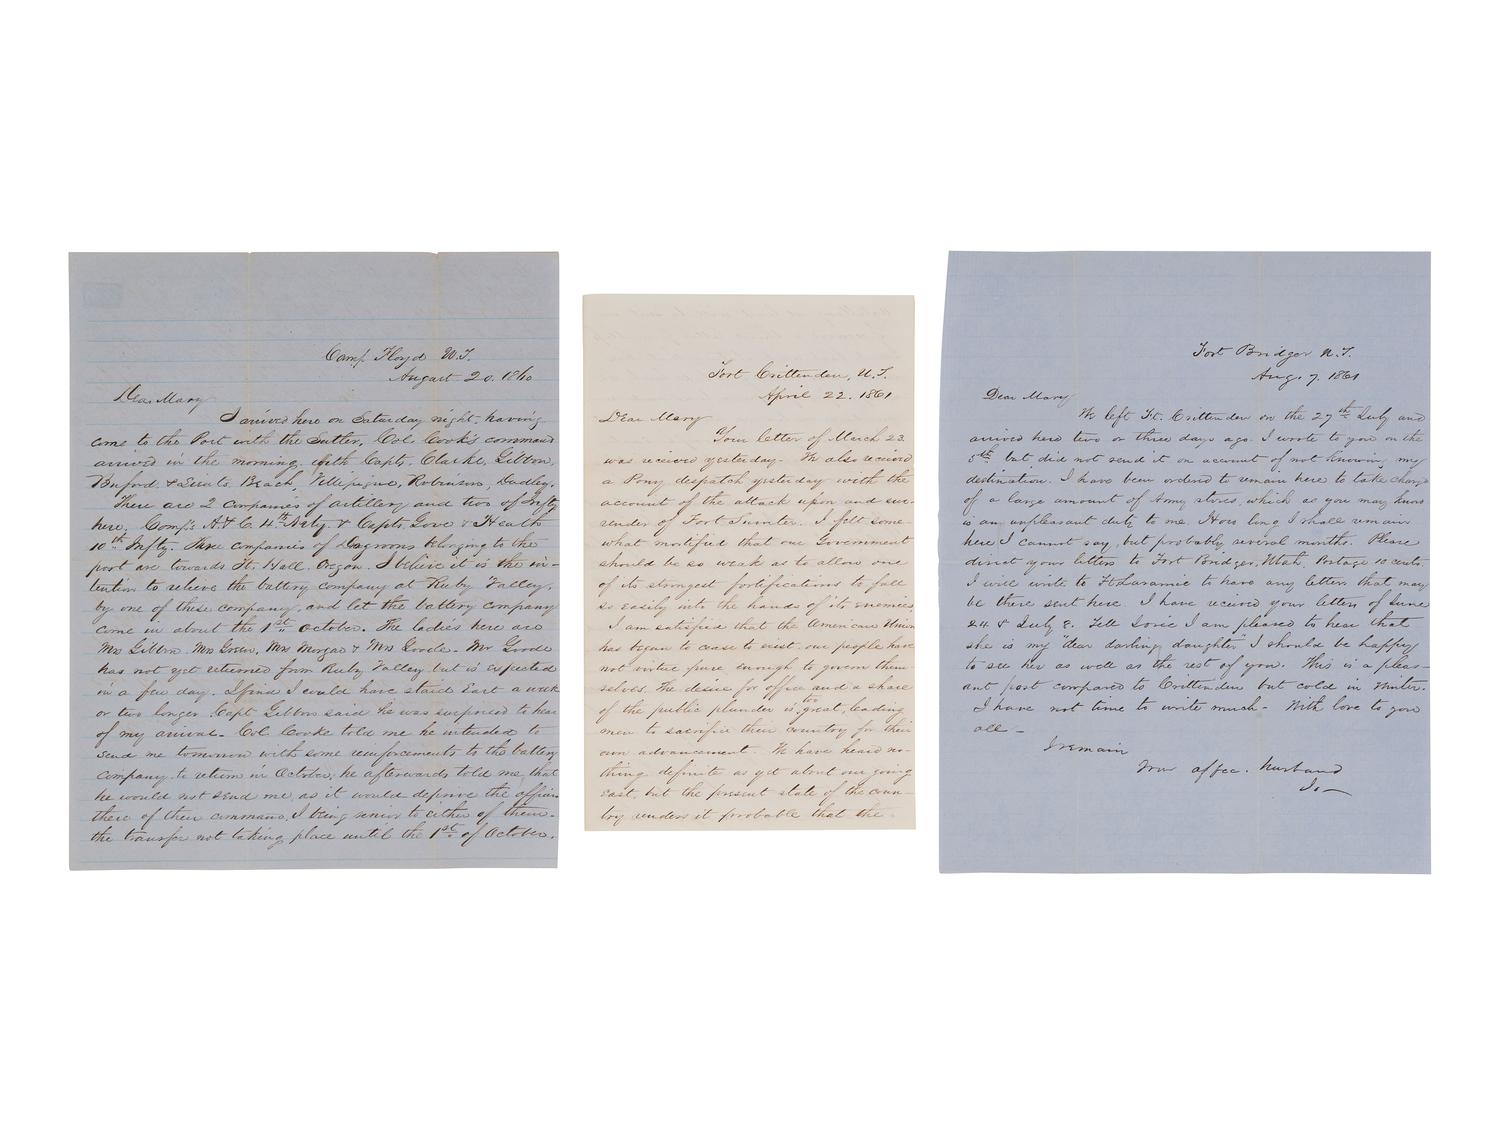 Camp Floyd U.T.
August 20. 1860
Dear Mary
I arrived here on Saturday night, having
come to the Post with the Sutler, Col. Cook's command
arrived in the morning with Capts. Clarke, Gibbon,
Buford. & Lieuts. Beach, Villepigue, Robinson, Dudley.
There are 2 companies of artillery and two of Infty
here, Comp's A & C. 4th Arty. & Capts Love & Heath
10th Infty. Three companies of Dragoons belonging to the
post are towards Ft. Hall, Oregon. I believe it is the in-
tention to relieve the battery company at Ruby Valley,
by one of these company, and let the battery company
come in about the 1st October. The ladies here are
Mrs Gibbon. Mrs Green, Mrs Morgan & Mrs Goode. Mr Goode
has not yet returned from Ruby Valley but is expected
in a few day. I find I could have staid East a week
or two longer. Capt Gibbon said he was surprised to hear
of my arrival. Col Cooke told me he intended to
send me tomorrow with some reinforcements to the battery
company to return in October, he afterwards told me, that
he would not send me, as it would deprive the officers
there of their command, I being senior to either of them.
the transfer not taking place until the 1st of October.
Fort Crittenden, U.T.
April 22. 1861
Dear Mary
Your letter of March 23
was received yesterday. We also received
a Pony despatch yesterday with the
account of the attack upon and sur-
render of Fort Sumter. I felt some-
what mortified that our Government
should be so weak as to allow one
of its strongest fortifications to fall
so easily into the hands of its enemies.
I am satisfied that the American Union
has began to cease to exist. our people have
not virtue pure enough to govern them-
selves. The desire for office and a share
of the public plunder is too great, leading
men to sacrifice their country for their
own advancement. We have heard no-
thing definite as yet about our going
East, but the present state of the coun-
try renders it probable that the
Fort Bridger U.T.
Aug. 7. 1861
Dear Mary
We left Ft. Crittenden on the 27th July and
arrived here two or three days ago. I wrote to you on the
5th but did not send it on account of not knowing my
destination. I have been ordered to remain here to take charge
of a large amount of Army stores, which as you may know
is an unpleasant duty to me. How long I shall remain
here I cannot say, but probably several months. Please
direct your letters to Fort Bridger, Utah, Postage 10 cents.
I will write to Ft Laramie to have any letters that may
be there sent here. I have received your letters of June
24 & July 8. Tell Josie I am pleased to hear that
she is my "dear darling daughter" I should be happy
to see her as well as the rest of you. This is a pleas-
ant post compared to Crittenden but cold in Winter.
I have not time to write much. With love to you
all -
I remain
Your affec. husband
Jo-